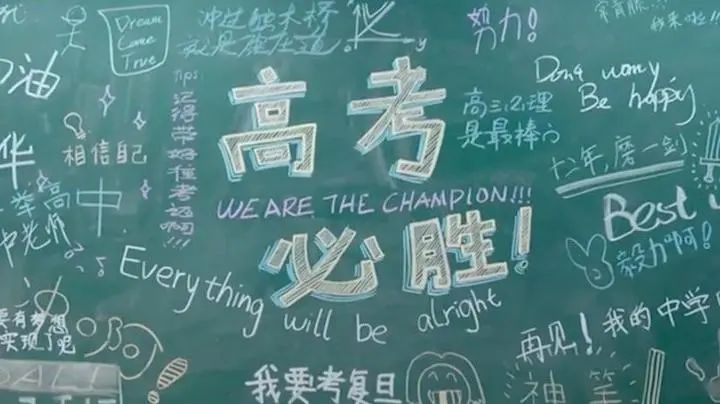 Dream
Come
True
冲过独木桥
就是座座道
y
努力!
油
高考
Tips
记得带好准考证啊!!!
相信自己
华
高三(2)理
是最棒的
Don't worry
Be happy
十二年,磨一剑
WE ARE THE CHAMPION!!!
一举高中
老师
必胜!
Best
毅力啊!
Everything will be alright
要有梦想
实现了呢
再见!我的中学
我要考复旦
神笔